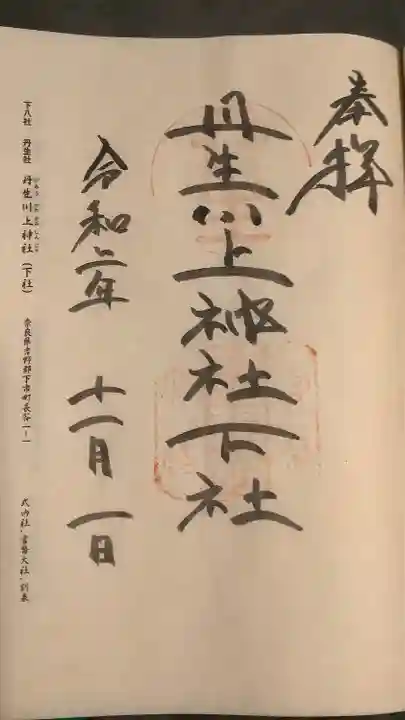 奉拝
丹生川上神社下社
令和二年 十一月一日
下八社 丹生社 丹生川上神社（下社） 奈良県吉野郡下市町長谷一ー一